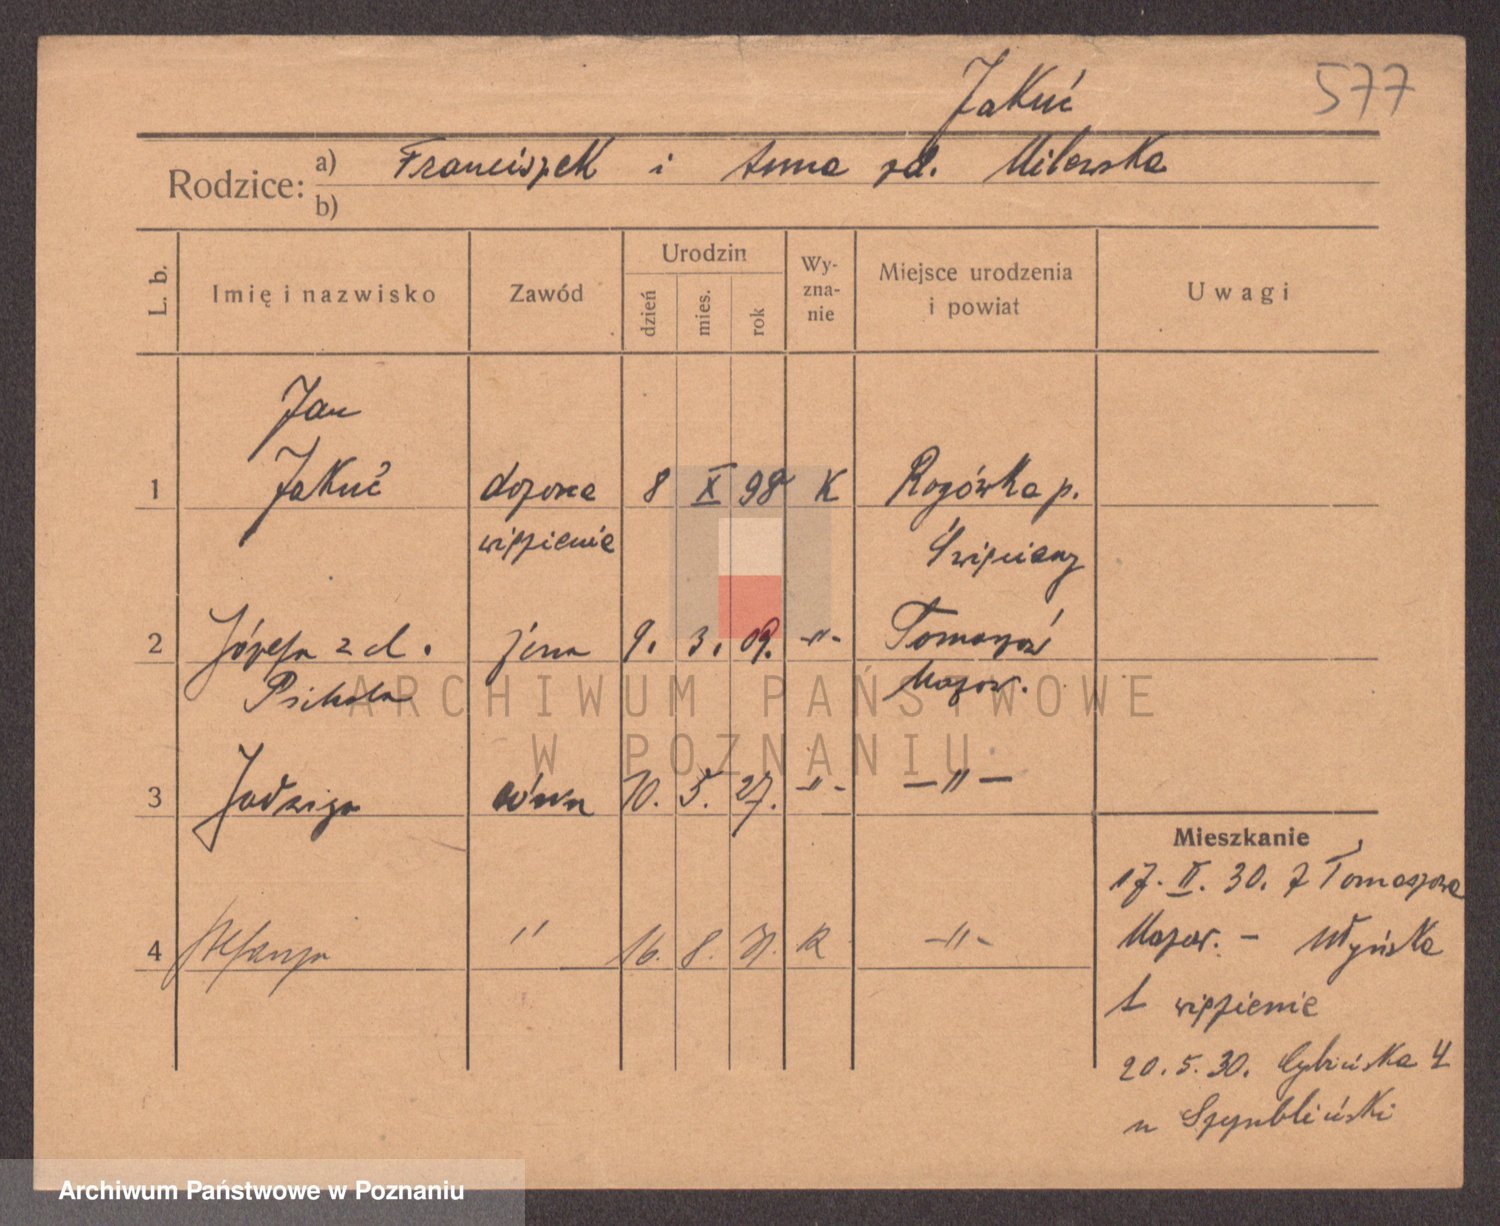 Jakuć
577
Rodzice:
a) Franciszek i Anna zd. Milewska
b)
L. b.
Imię i nazwisko
Zawód
Urodzin
dzień
mies.
rok
Wy-
zna-
nie
Miejsce urodzenia
i powiat
Uwagi
Jan
1 Jakuć dozorca 8 X 98 K Rogówka p.
więzienie Święciany
2 Józefa zd. żona 9. 3. 09. -"- Tomaszów
Mazow.
3 Jadwiga córka 10. 5. 27. -"- -"-
4 Stefanja " 16. 8. 31. K -"-
Mieszkanie
17. II. 30. z Tomaszowa
Mazow. - Młyńska
1 więzienie
20. 5. 30. Cybińska 4
u
ARCHIWUM PAŃSTWOWE
W POZNANIU
Archiwum Państwowe w Poznaniu